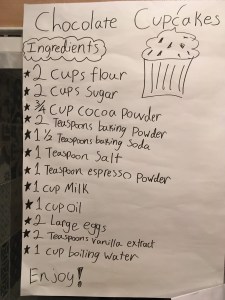 Chocolate Cupcakes
Ingredients
★ 2 cups flour
★ 2 cups sugar
★ ¾ cup cocoa powder
★ 2 Teaspoons baking Powder
★ 1 ½ Teaspoons baking Soda
★ 1 Teaspoon Salt
★ 1 Teaspoon espresso Powder
★ 1 cup Milk
★ 1 cup oil
★ 2 Large eggs
★ 2 Teaspoons vanilla extract
★ 1 cup boiling water
Enjoy!